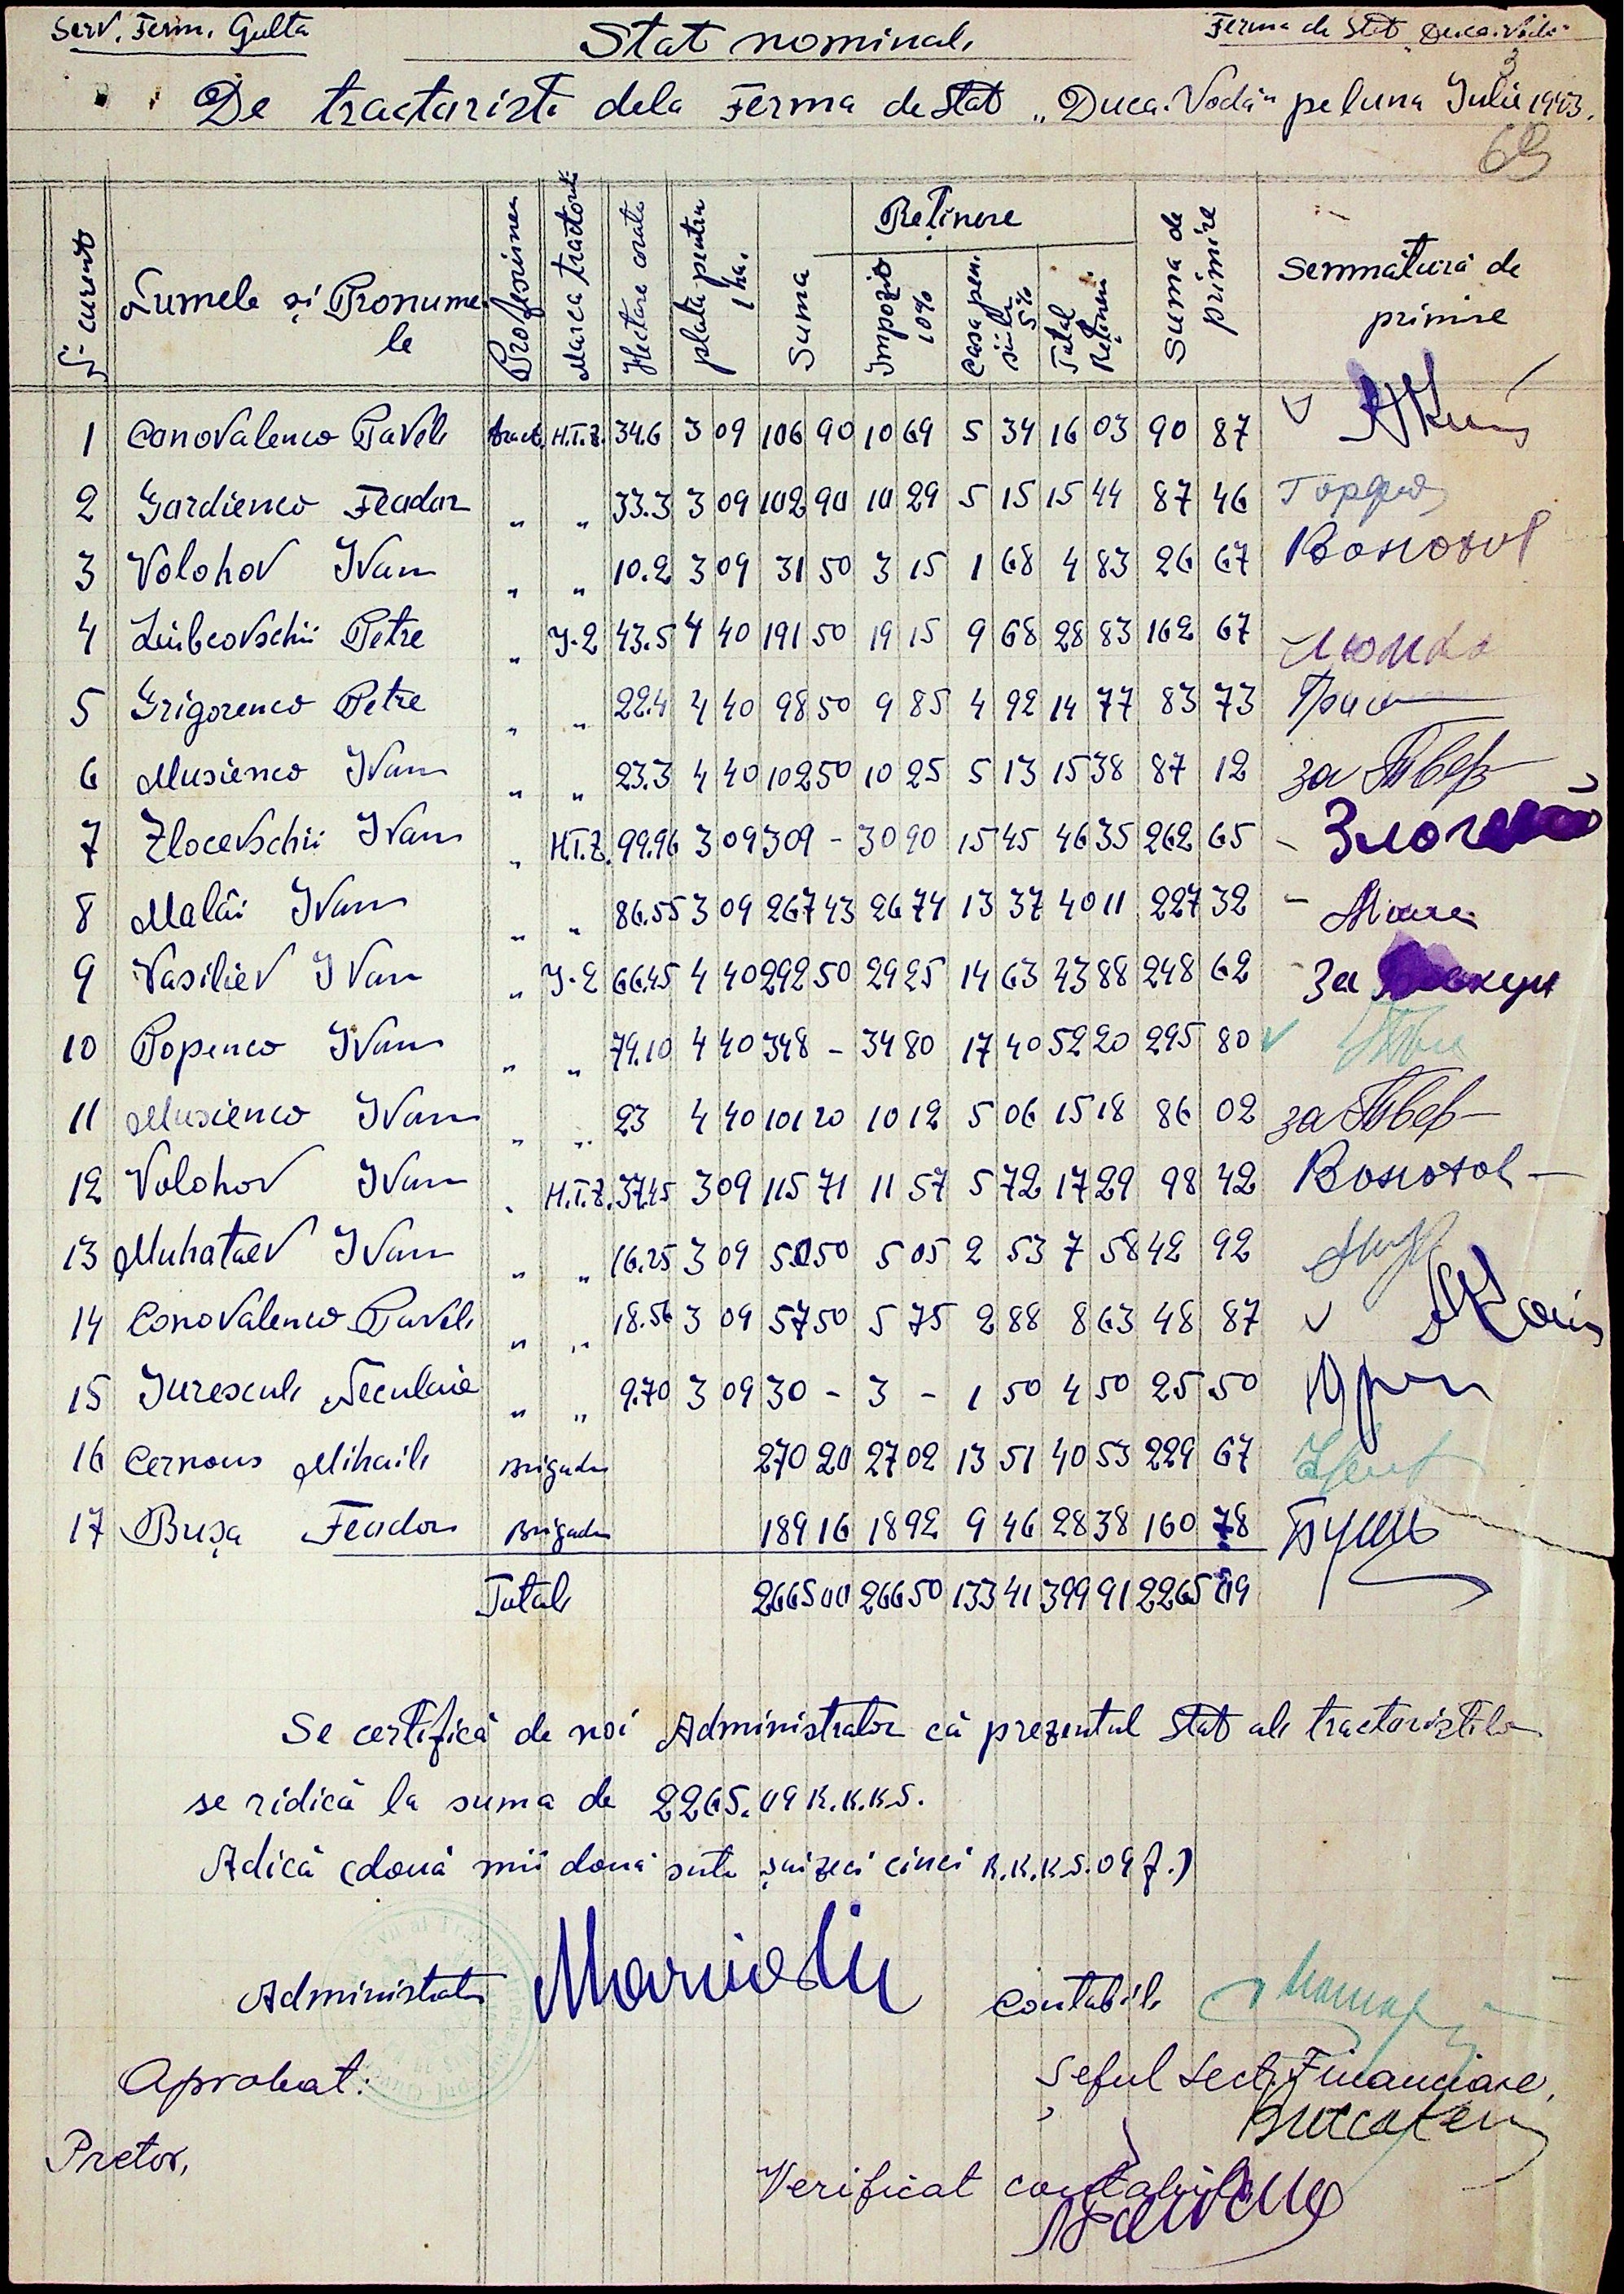 Serv. Ferm. Gulta
Ferma de Stat „Duca-Vodă"
Stat nominal
De tractoristi dela Ferma de Stat „Duca-Vodă" pe luna Iulie 1943.
69
N curent Numele și Pronumele Profesiunea Marca tractorul Hectare arate plata pentru 1 ha. Suma Reținere Impozit 10% Casa pensii 5% Total Rețineri Suma de primire Semnătura de primire
1 Conovalenco Pavel tract. H.T.Z. 34.6 3 09 106 90 10 69 5 34 16 03 90 87
2 Gordienco Feador „ „ 33.3 3 09 102 90 10 29 5 15 15 44 87 46
3 Volohov Ivan „ „ 10.2 3 09 31 50 3 15 1 68 4 83 26 67 Волохов
4 Liubcovschii Petre „ I-2 43.5 4 40 191 50 19 15 9 68 28 83 162 67
5 Grigorenco Petre „ „ 22.4 4 40 98 50 9 85 4 92 14 77 83 73
6 Musienco Ivan „ „ 23.3 4 40 102 50 10 25 5 13 15 38 87 12 за Твер
7 Zlocevschii Ivan „ H.T.Z. 99.96 3 09 309 - 30 90 15 45 46 35 262 65
8 Malâi Ivan „ „ 86.55 3 09 267 43 26 74 13 37 40 11 227 32
9 Vasiliev Ivan „ I-2 66.45 4 40 292 50 29 25 14 63 43 88 248 62 За
10 Popenco Ivan „ „ 79.10 4 40 348 - 34 80 17 40 52 20 295 80
11 Musienco Ivan „ „ 23 4 40 101 20 10 12 5 06 15 18 86 02 за Твер
12 Volohov Ivan „ H.T.Z. 37.45 3 09 115 71 11 57 5 72 17 29 98 42 Волохов
13 Muhataev Ivan „ „ 16.25 3 09 50 50 5 05 2 53 7 58 42 92
14 Conovalenco Pavel „ „ 18.56 3 09 57 50 5 75 2 88 8 63 48 87
15 Iurescul Neculaie „ „ 9.70 3 09 30 - 3 - 1 50 4 50 25 50
16 Cernous Mihail Brigadir 270 20 27 02 13 51 40 53 229 67
17 Bușa Feador Brigadir 189 16 18 92 9 46 28 38 160 78
Total 2665 00 266 50 133 41 399 91 2265 09
Se certifică de noi Administrator că prezentul Stat al tractoristilor
se ridică la suma de 2265.09 R.K.K.S.
Adică (două mii două sute șaizeci cinci R.K.K.S. 09 f.)
Administrator
Contabil
Aprobat:
Șeful Sect. Financiare,
Pretor,
Verificat contabil